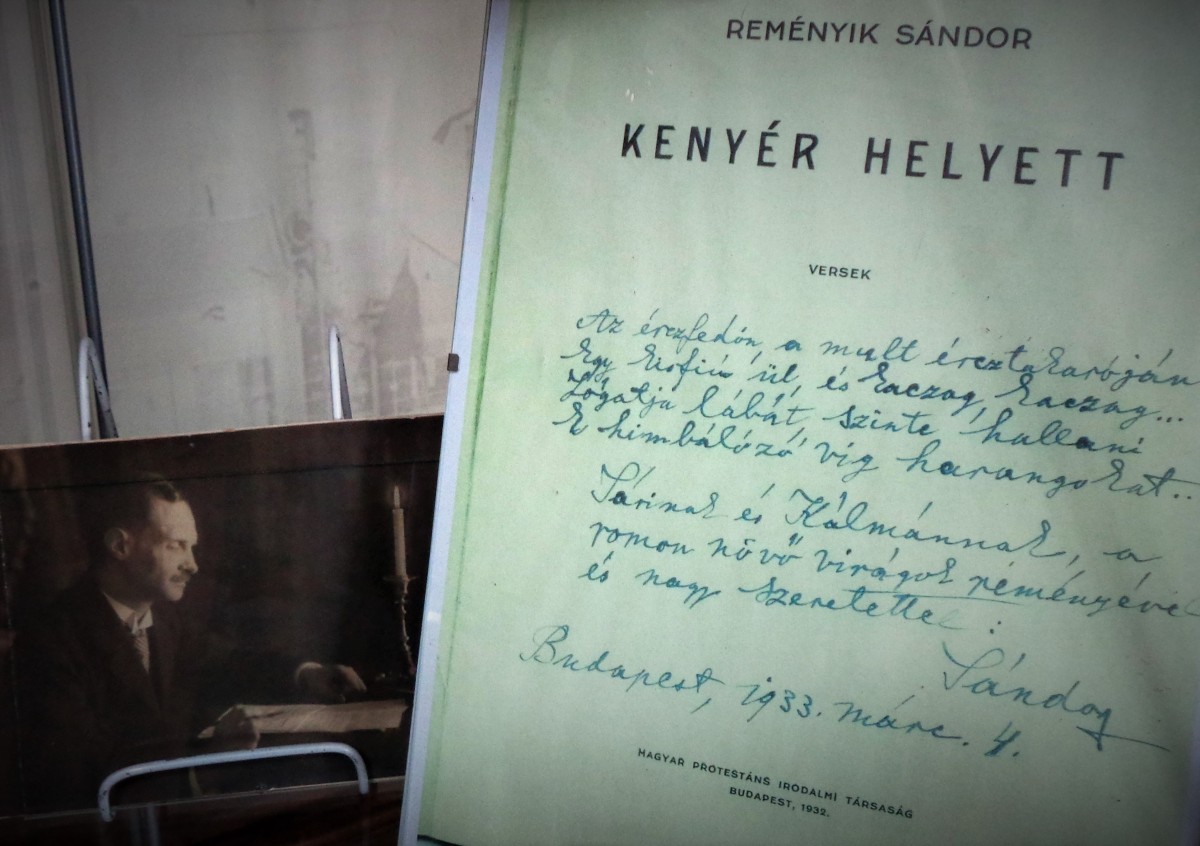 REMÉNYIK SÁNDOR
KENYÉR HELYETT
VERSEK
Az érczfedőn, a mult ércztakaróján
Egy kisfiú ül, és kaczag, kaczag...
Lógatja lábát, szinte hallani
E himbálózó víg harangokat..
Sárinak és Kálmánnak, a
romon növő virágok reményével
és nagy szeretettel:
Sándor
Budapest, 1933. márc. 4.
MAGYAR PROTESTÁNS IRODALMI TÁRSASÁG
BUDAPEST, 1932.